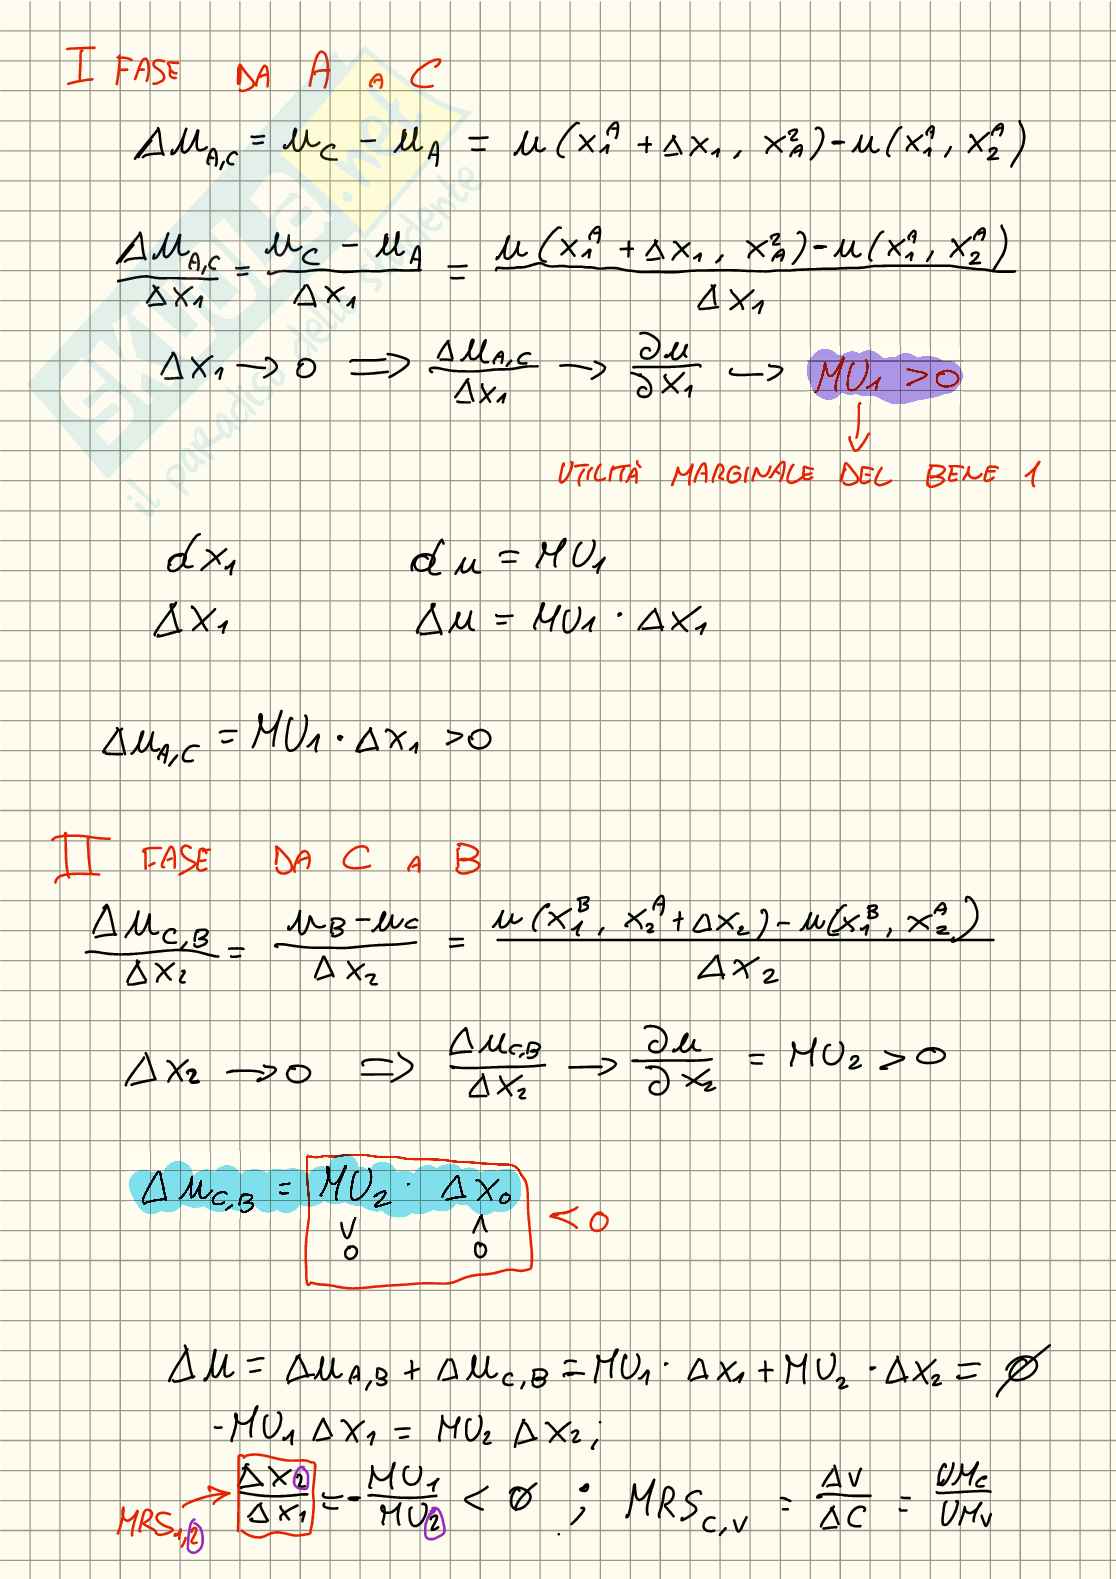 I FASE DA A A C
Δu_{A,C} = u_C - u_A = u(x_1^A + Δx_1, x_A^2) - u(x_1^A, x_2^A)
Δu_{A,C}/Δx_1 = (u_C - u_A)/Δx_1 = (u(x_1^A + Δx_1, x_A^2) - u(x_1^A, x_2^A))/Δx_1
Δx_1 → 0 ⟹ Δu_{A,C}/Δx_1 → ∂u/∂x_1 → MU_1 > 0
UTILITÀ MARGINALE DEL BENE 1
dx_1 du = MU_1
Δx_1 Δu = MU_1 · Δx_1
Δu_{A,C} = MU_1 · Δx_1 > 0
II FASE DA C A B
Δu_{C,B}/Δx_2 = (u_B - u_C)/Δx_2 = (u(x_1^B, x_2^A + Δx_2) - u(x_1^B, x_2^A))/Δx_2
Δx_2 → 0 ⟹ Δu_{C,B}/Δx_2 → ∂u/∂x_2 = MU_2 > 0
Δu_{C,B} = MU_2 · Δx_0 < 0
∨ ∧
0 0
Δu = Δu_{A,B} + Δu_{C,B} = MU_1 · Δx_1 + MU_2 · Δx_2 = ∅
-MU_1 Δx_1 = MU_2 Δx_2;
MRS_{1,2} → Δx_2/Δx_1 = -MU_1/MU_2 < ∅ ; MRS_{C,V} = ΔV/ΔC = UM_C/UM_V
SKUOLA.net
il paradiso dello studente